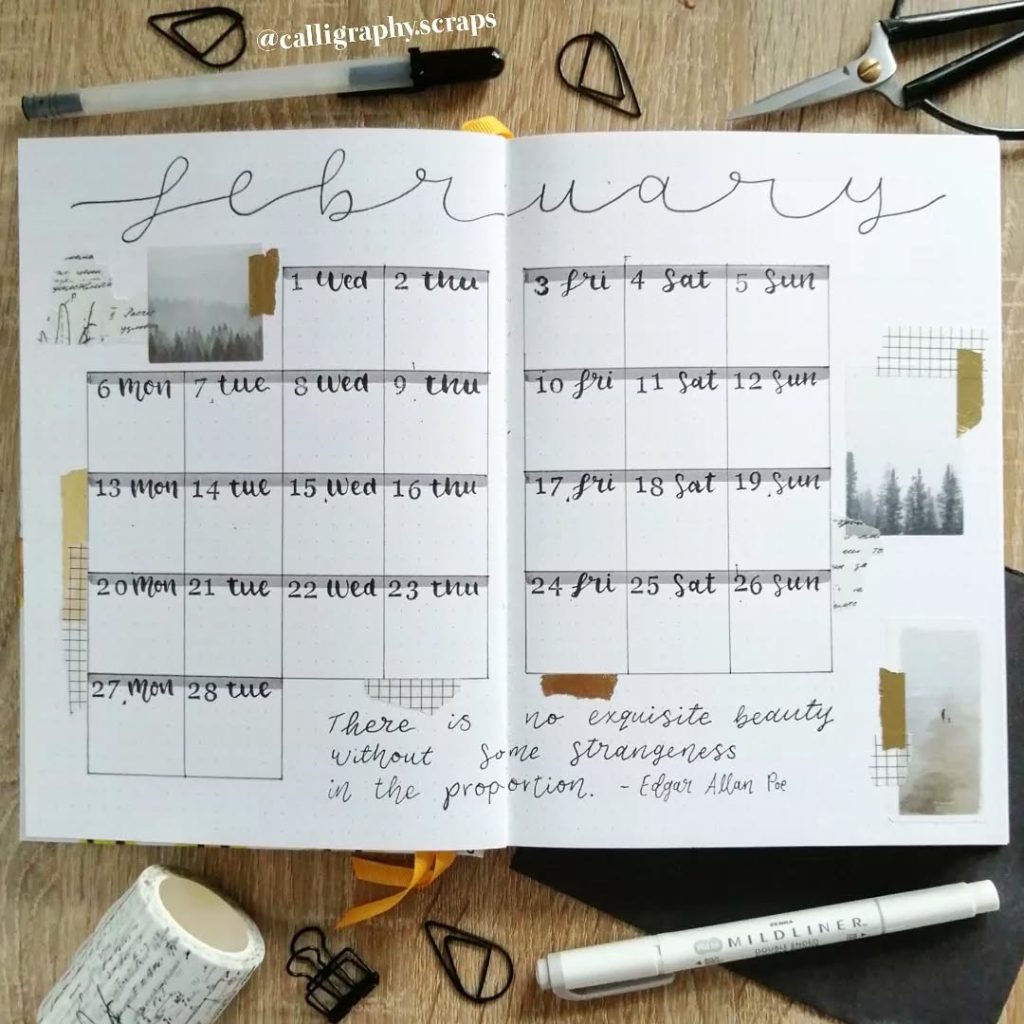 @calligraphy.scraps
february
1 Wed 2 thu 3 fri 4 Sat 5 Sun
6 mon 7 tue 8 Wed 9 thu 10 fri 11 Sat 12 Sun
13 mon 14 tue 15 Wed 16 thu 17 fri 18 Sat 19 Sun
20 mon 21 tue 22 Wed 23 thu 24 fri 25 Sat 26 Sun
27 mon 28 tue
There is no exquisite beauty
without some strangeness
in the proportion. - Edgar Allan Poe
ZEBRA
MILDLINER
DOUBLE ENDED